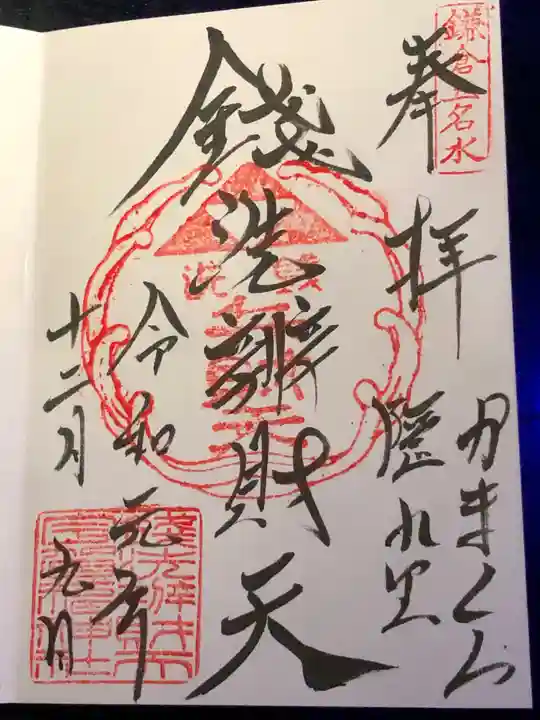 鎌倉五名水
奉拝
かまくら
隱れ里
錢洗辨財天
令和元年
十二月
九日